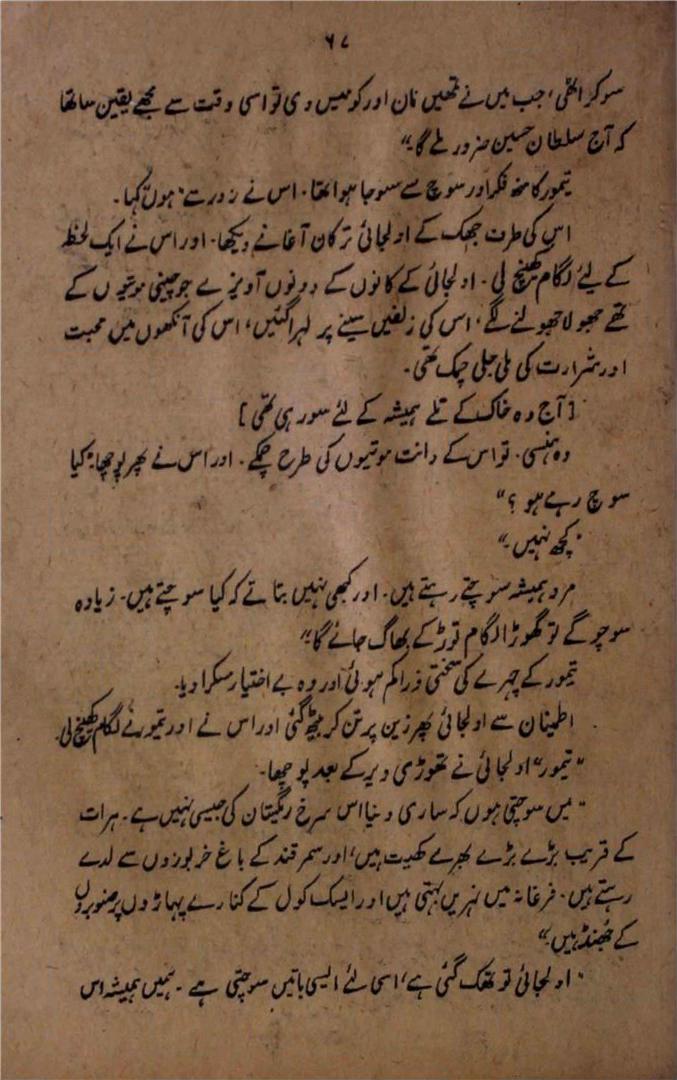 ۶۷
سوکر اٹھی، جب میں نے تمھیں نان اور کومیس دی تو اسی وقت سے مجھے یقین سا تھا
کہ آج سلطان حسین ضرور ملے گا۔"
تیمور کا منھ فکر اور سوچ سے سوجا ہوا تھا۔ اس نے زور سے "ہوں" کہا۔
اس کی طرف جھک کے اولجائی ترکان آغا نے دیکھا۔ اور اس نے ایک لحظہ
کے لئے لگام کھینچ لی۔ اولجائی کے کانوں کے دونوں آویزے جو چینی موتیوں کے
تھے جھولا جھولنے لگے، اس کی زلفیں سینے پر لہرا گئیں، اس کی آنکھوں میں محبت
اور شرارت کی ملی جلی چمک تھی۔
[آج وہ خاک کے تلے ہمیشہ کے لئے سو رہی تھی]
وہ ہنسی۔ تو اس کے دانت موتیوں کی طرح چمکے۔ اور اس نے پھر پوچھا "کیا
سوچ رہے ہو؟"
"کچھ نہیں۔"
مرد ہمیشہ سوچتے رہتے ہیں۔ اور کبھی نہیں بتاتے کہ کیا سوچتے ہیں۔ زیادہ
سوچو گے تو گھوڑا لگام توڑ کے بھاگ جائے گا۔"
تیمور کے چہرے کی سختی ذرا کم ہوئی اور وہ بے اختیار مسکرا دیا۔
اطینان سے اولجائی پھر زین پر تن کر بیٹھ گئی اور اس نے اور تیمور نے لگام کھینچ لی۔
"تیمور" اولجائی نے تھوڑی دیر کے بعد پوچھا۔
"میں سوچتی ہوں کہ ساری دنیا اس سرخ ریگستان کی جیسی نہیں ہے۔ ہرات
کے قریب بڑے بڑے ہرے کھیت ہیں، اور سمرقند کے باغ خربوزوں سے لدے
رہتے ہیں۔ فرغانہ میں نہریں بہتی ہیں اور ایسک کول کے کنارے پہاڑوں پر صنوبروں
کے جھنڈ ہیں۔"
"اولجائی تو تھک گئی ہے، اسی لئے ایسی باتیں سوچتی ہے۔ ہمیں ہمیشہ اس